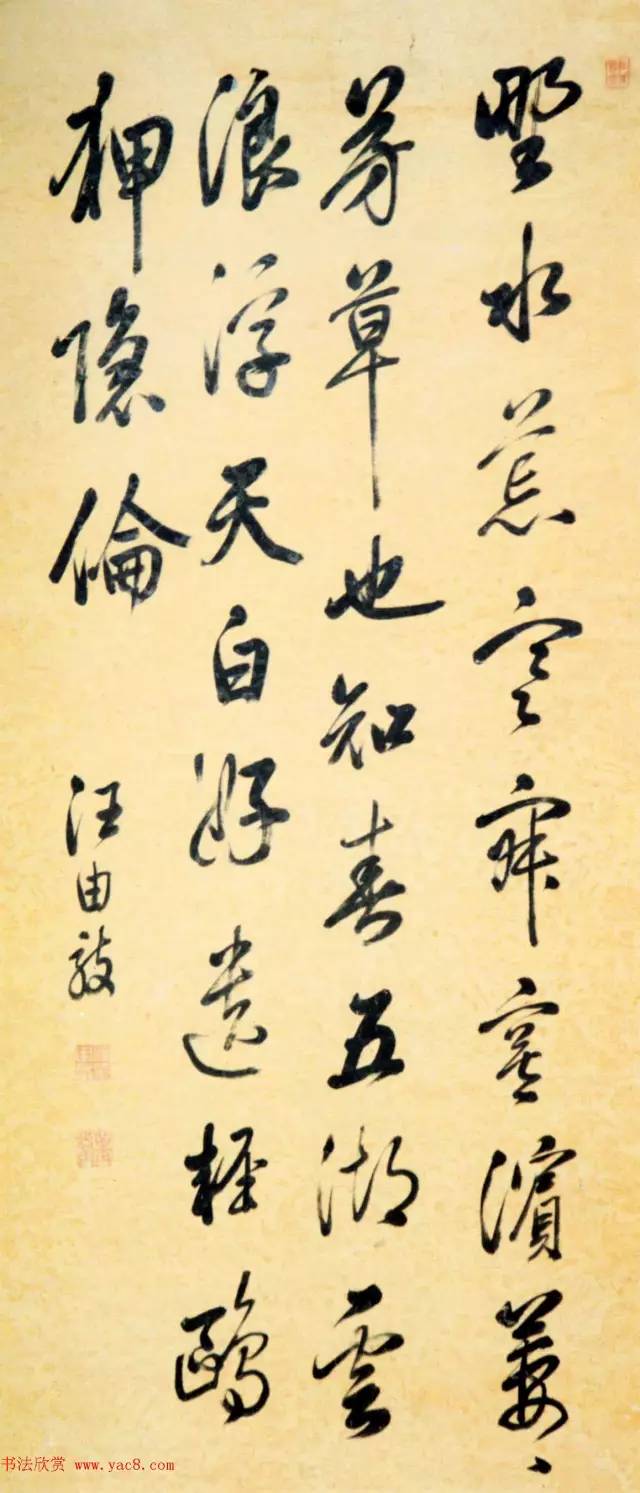 野水荒寒寂寞濱萋〻
芳草也知春五湖雲
浪浮天白好遣輕鷗
狎隱倫
汪由敦
书法欣赏 www.yac8.com